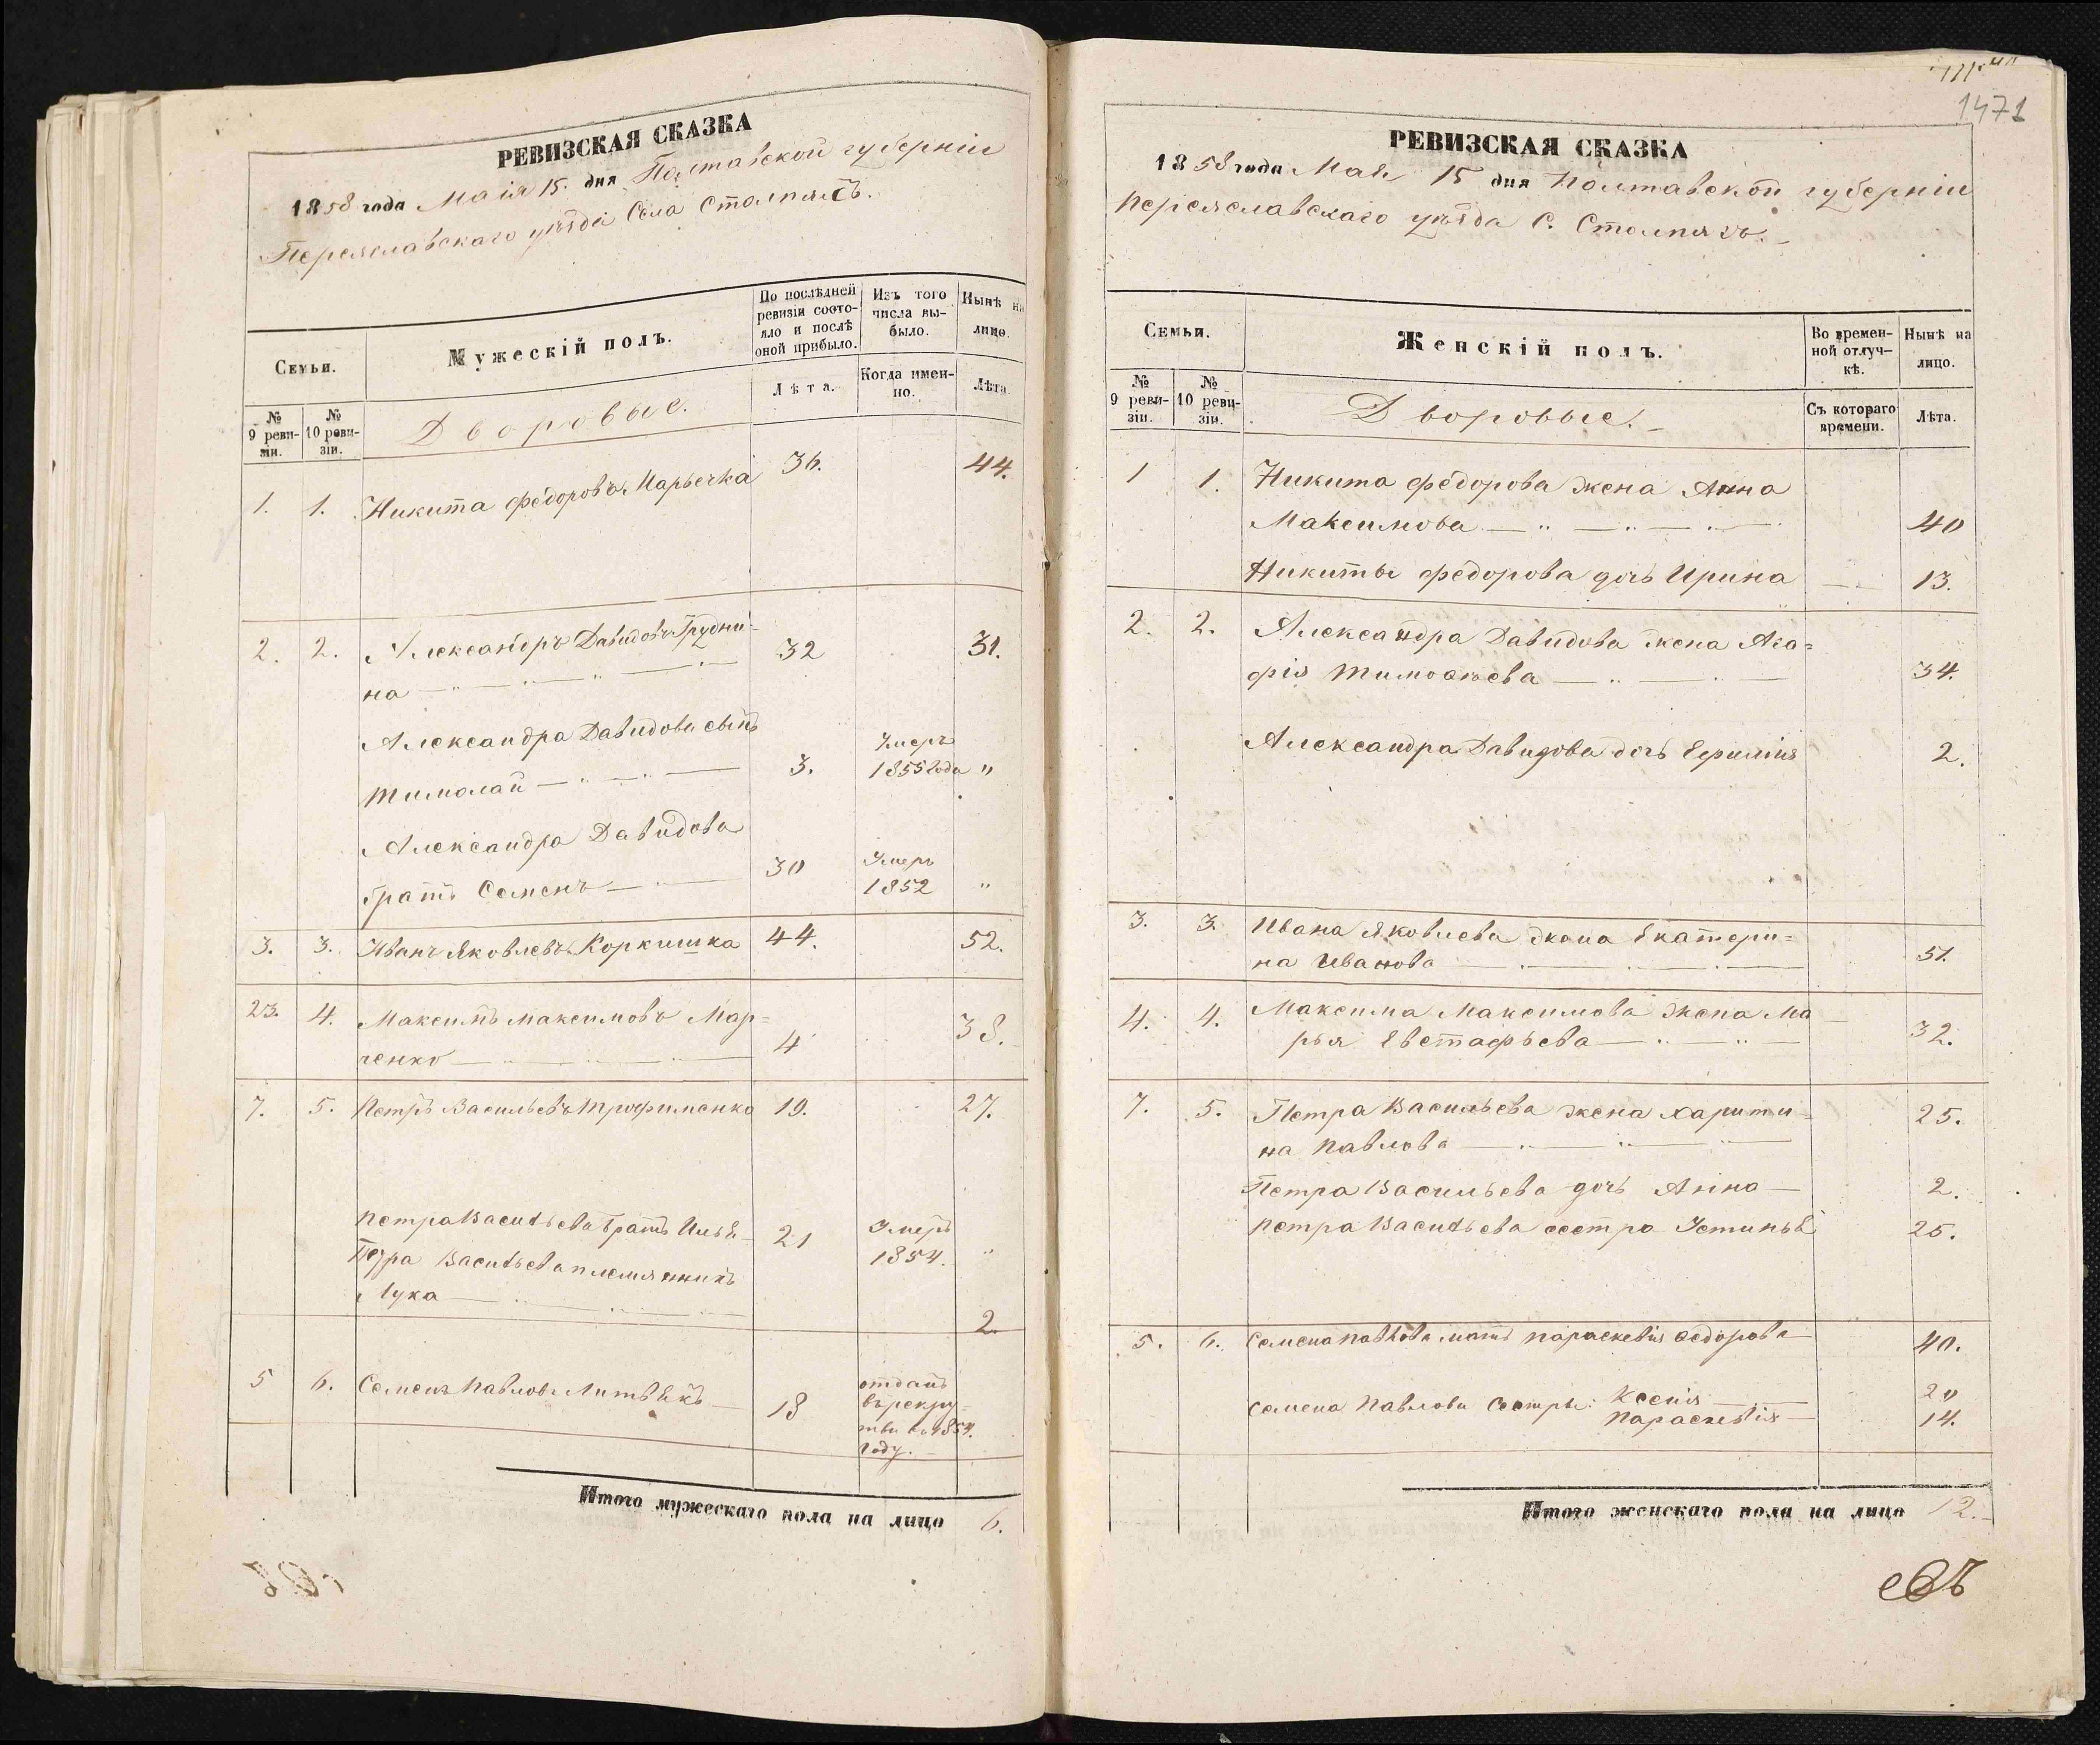 РЕВИЗСКАЯ СКАЗКА
1858 года Маія 15. дня Полтавской губерніи
Переяславскаго уѣзда Села Столпягъ.
Семьи.
Мужескій полъ.
По послѣдней ревизіи состояло и послѣ оной прибыло.
Изъ того числа выбыло.
Нынѣ на лицо.
№ 9 ревизіи.
№ 10 ревизіи.
Дворовые.
Лѣта.
Когда именно.
Лѣта.
1. 1. Никита Федоровъ Марьечка 36. 44.
2. 2. Александръ Давидовъ Грудни=
на 32 31.
Александра Давидова сынъ
Тимолай 3. Умеръ 1855 года "
Александра Давидова
братъ Семенъ 30 Умеръ 1852 "
3. 3. Иванъ Яковлевъ Коркишка 44. 52.
23. 4. Максимъ Максимовъ Мар=
ченко 4 38.
7. 5. Петръ Васильевъ Трофименко 19. 27.
Петра Васильева братъ Илья 21 Умеръ 1854. "
Петра Васильева племянникъ
Лука 2.
5 6. Семенъ Павловъ Литвякъ 18 отданъ
въ рекру=
ты въ 1854.
году.
Итого мужескаго пола на лицо 6.
1471
РЕВИЗСКАЯ СКАЗКА
1858 года Мая 15 дня Полтавской губерніи
Переяславскаго уѣзда С. Столпягъ.
Семьи.
Женскій полъ.
Во временной отлучкѣ.
Нынѣ на лицо.
№ 9 ревизіи.
№ 10 ревизіи.
Дворовые.
Съ котораго времени.
Лѣта.
1 1. Никита Федорова жена Анна
Максимова 40
Никиты Федорова дочь Ирина 13.
2. 2. Александра Давидова жена Ага=
фія Тимоѳѣева 34.
Александра Давидова дочь Ефимія 2.
3. 3. Ивана Яковлева жена Екатери=
на Иванова 51.
4. 4. Максима Максимова жена Ма
рья Евстафьева 32.
7. 5. Петра Васильева жена Харити=
на Павлова 25.
Петра Васильева дочь Анна 2.
Петра Васильева сестра Устинья 25.
5. 6. Семена Павлова мать Параскевія Ѳедорова 40.
Семена Павлова сестры: Ксенія 20
Параскевія 14.
Итого женскаго пола на лицо 12.